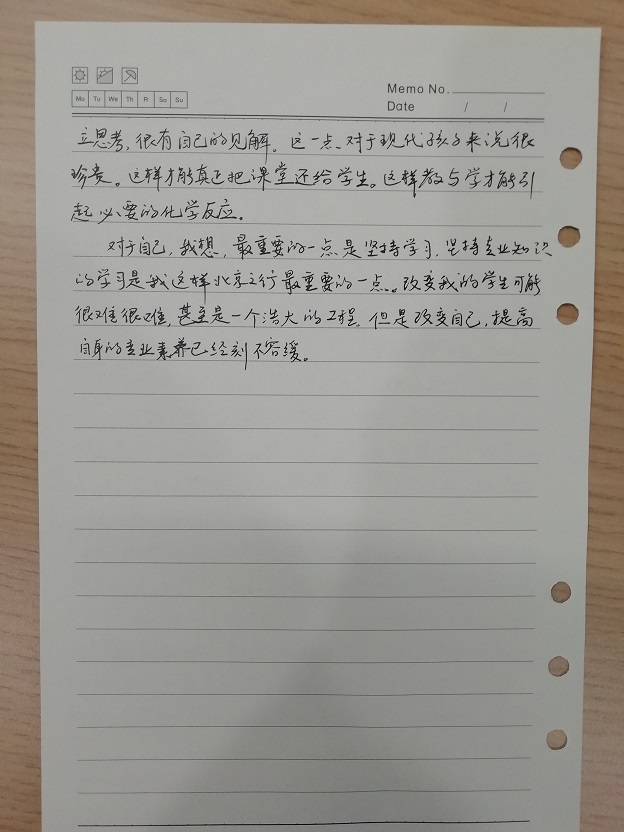 Memo No.
Mo Tu We Th Fr Sa Su
Date / /
立思考,很有自己的见解。这一点,对于现代孩子来说很
珍贵。这样才能真正把课堂还给学生。这样教与学才能引
起必要的化学反应。
对于自己,我想,最重要的一点是坚持学习,坚持专业知识
的学习是我这样北京之行最重要的一点。改变我的学生可能
很难很难,甚至是一个浩大的工程。但是改变自己,提高
自身的专业素养已经刻不容缓。